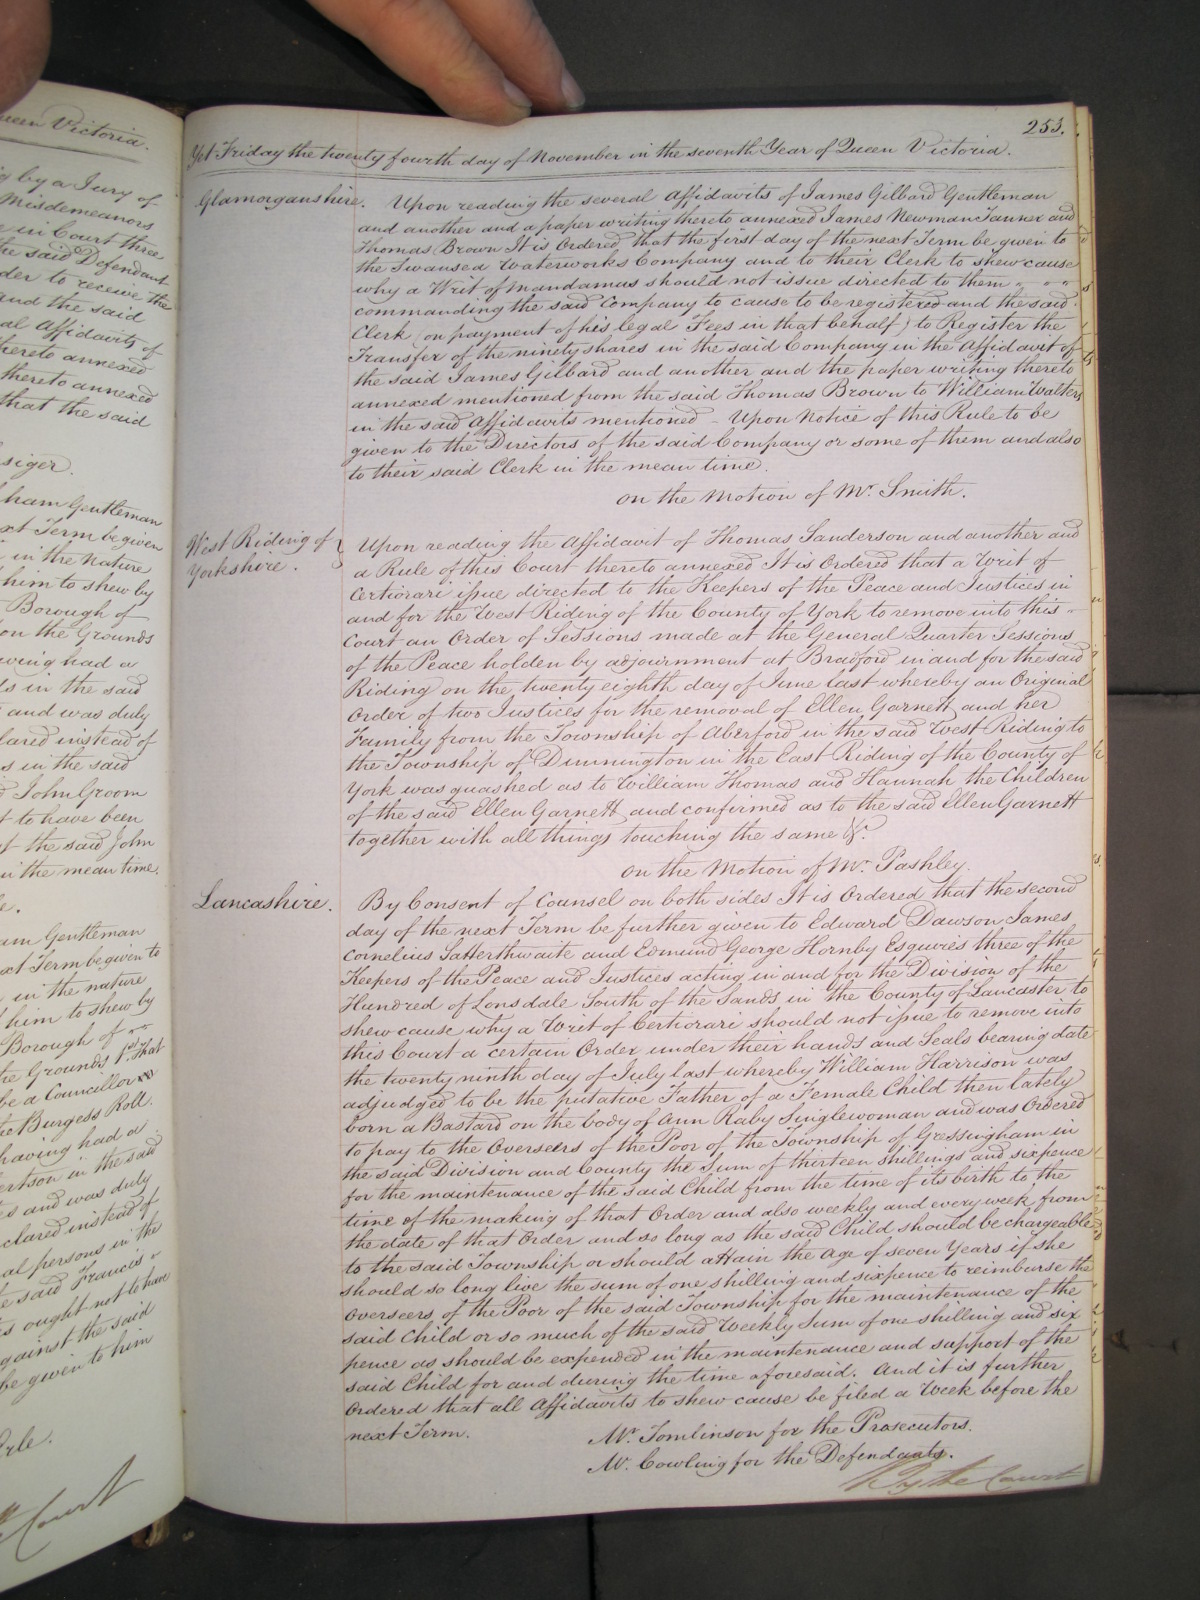 ueen Victoria.
g by a Jury of
Misdemeanors
e in Court three
the said Defendant
der to receive the
and the said
al Affidavits of
thereto annexed
thereto annexed
that the said
siger.
ham Gentleman
xt Term be given
in the Nature
him to shew by
Borough of
on the Grounds
having had a
ts in the said
and was duly
lared instead of
s in the said
John Groom
t to have been
t the said John
in the mean time.
le.
am Gentleman
xt Term be given to
in the nature
him to shew by
Borough of
the Grounds 1st That
be a Councillor
the Burgess Roll.
having had a
ertson in the said
s and was duly
clared instead of
al persons in the
e said Francis
s ought not to have
gainst the said
be given to him
Erle.
Court
253.
Yet Friday the twenty fourth day of November in the seventh Year of Queen Victoria.
Glamorganshire. Upon reading the several Affidavits of James Gilbard Gentleman
and another and a paper writing thereto annexed James Newman Tanner and
Thomas Brown It is Ordered that the first day of the next Term be given to
the Swansea Waterworks Company and to their Clerk to shew cause
why a Writ of Mandamus should not issue directed to them
commanding the said Company to cause to be registered and the said
Clerk (on payment of his legal Fees in that behalf) to Register the
Transfer of the ninety shares in the said Company in the Affidavit of
the said James Gilbard and another and the paper writing thereto
annexed mentioned from the said Thomas Brown to William Walters
in the said Affidavits mentioned - Upon Notice of this Rule to be
given to the Directors of the said Company or some of them and also
to their said Clerk in the mean time.
on the Motion of Mr. Smith.
West Riding of
Yorkshire.
Upon reading the Affidavit of Thomas Sanderson and another and
a Rule of this Court thereto annexed It is Ordered that a Writ of
Certiorari issue directed to the Keepers of the Peace and Justices in
and for the West Riding of the County of York to remove into this
Court an Order of Sessions made at the General Quarter Sessions
of the Peace holden by adjournment at Bradford in and for the said
Riding on the twenty eighth day of June last whereby an Original
Order of two Justices for the removal of Ellen Garnett and her
Family from the Township of Aberford in the said West Riding to
the Township of Dunnington in the East Riding of the County of
York was quashed as to William Thomas and Hannah the Children
of the said Ellen Garnett and confirmed as to the said Ellen Garnett
together with all things touching the same &c.
on the Motion of Mr. Pashley.
Lancashire. By Consent of Counsel on both sides It is Ordered that the second
day of the next Term be further given to Edward Dawson James
Cornelius Satterthwaite and Edmund George Hornby Esquires three of the
Keepers of the Peace and Justices acting in and for the Division of the
Hundred of Lonsdale South of the Sands in the County of Lancaster to
shew cause why a Writ of Certiorari should not issue to remove into
this Court a certain Order under their hands and Seals bearing date
the twenty ninth day of July last whereby William Harrison was
adjudged to be the putative Father of a Female Child then lately
born a Bastard on the body of Ann Raby Singlewoman and was Ordered
to pay to the Overseers of the Poor of the Township of Gressingham in
the said Division and County the Sum of thirteen shillings and sixpence
for the maintenance of the said Child from the time of its birth to the
time of the making of that Order and also weekly and every week from
the date of that Order and so long as the said Child should be chargeable
to the said Township or should attain the Age of seven Years if she
should so long live the sum of one shilling and sixpence to reimburse the
Overseers of the Poor of the said Township for the maintenance of the
said Child or so much of the said Weekly Sum of one shilling and six
pence as should be expended in the maintenance and support of the
said Child for and during the time aforesaid. And it is further
Ordered that all Affidavits to shew cause be filed a Week before the
next Term.
Mr. Tomlinson for the Prosecutors.
Mr. Cowling for the Defendants.
By the Court